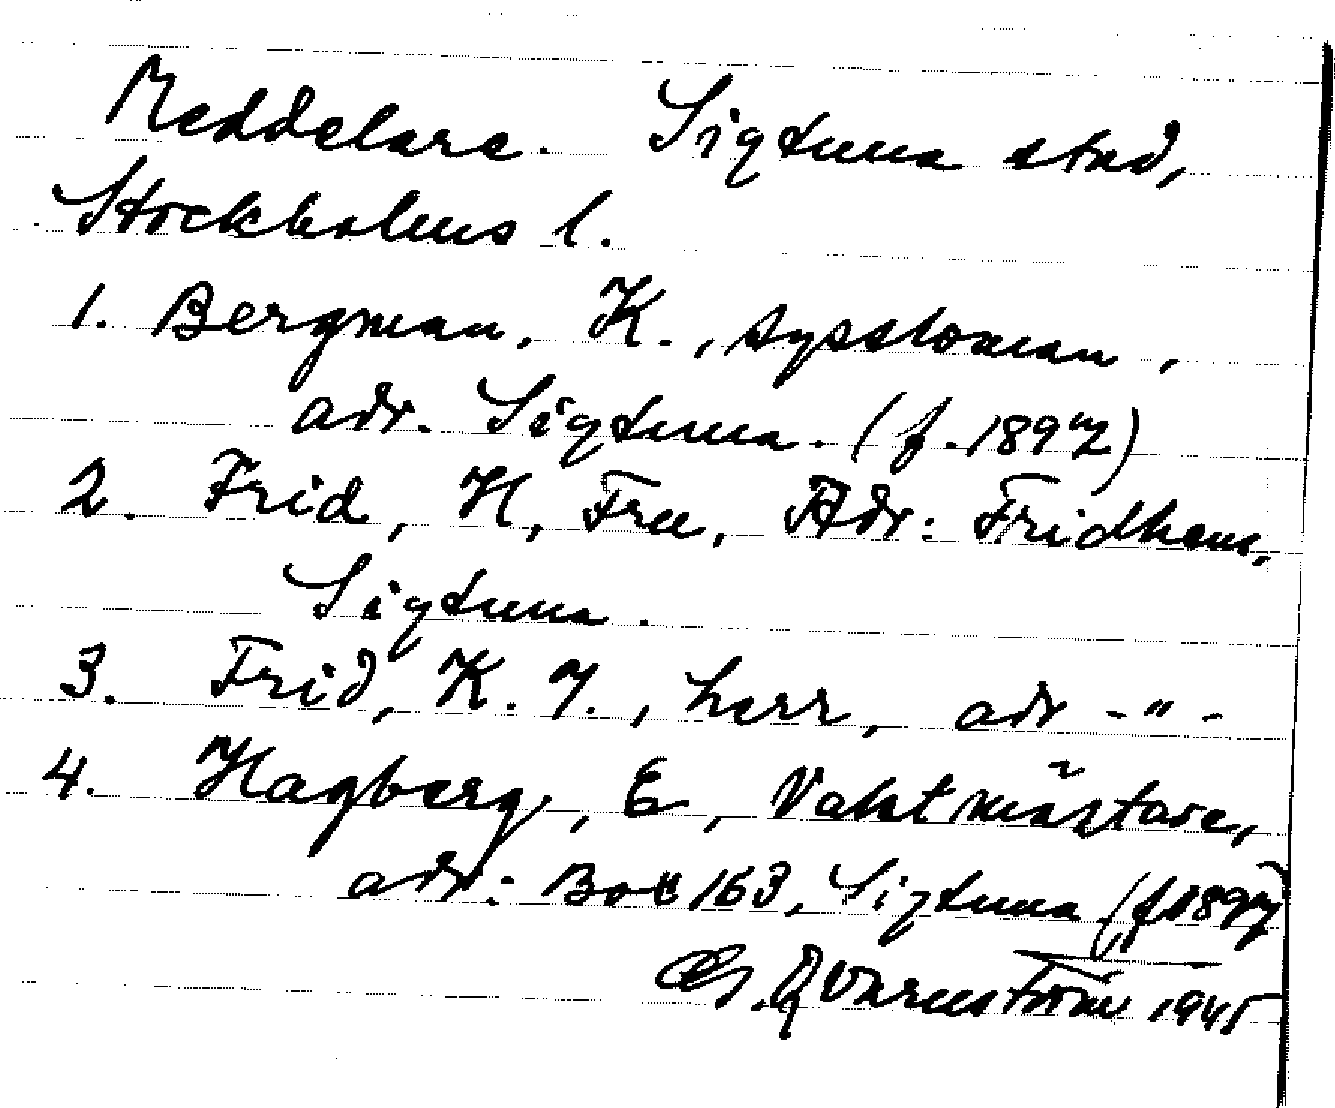 Meddelare. Sigtuna stad,
Stockholms l.
1. Bergman, K., syssloman,
adr. Sigtuna. (f. 1897)
2. Frid, H, Fru, Adr: Fridhem,
Sigtuna.
3. Frid, K. J., herr, adr -"-
4. Hagberg, E, Vaktmästare,
adr: Box 163, Sigtuna (f 1897)
Qvarnström 1945